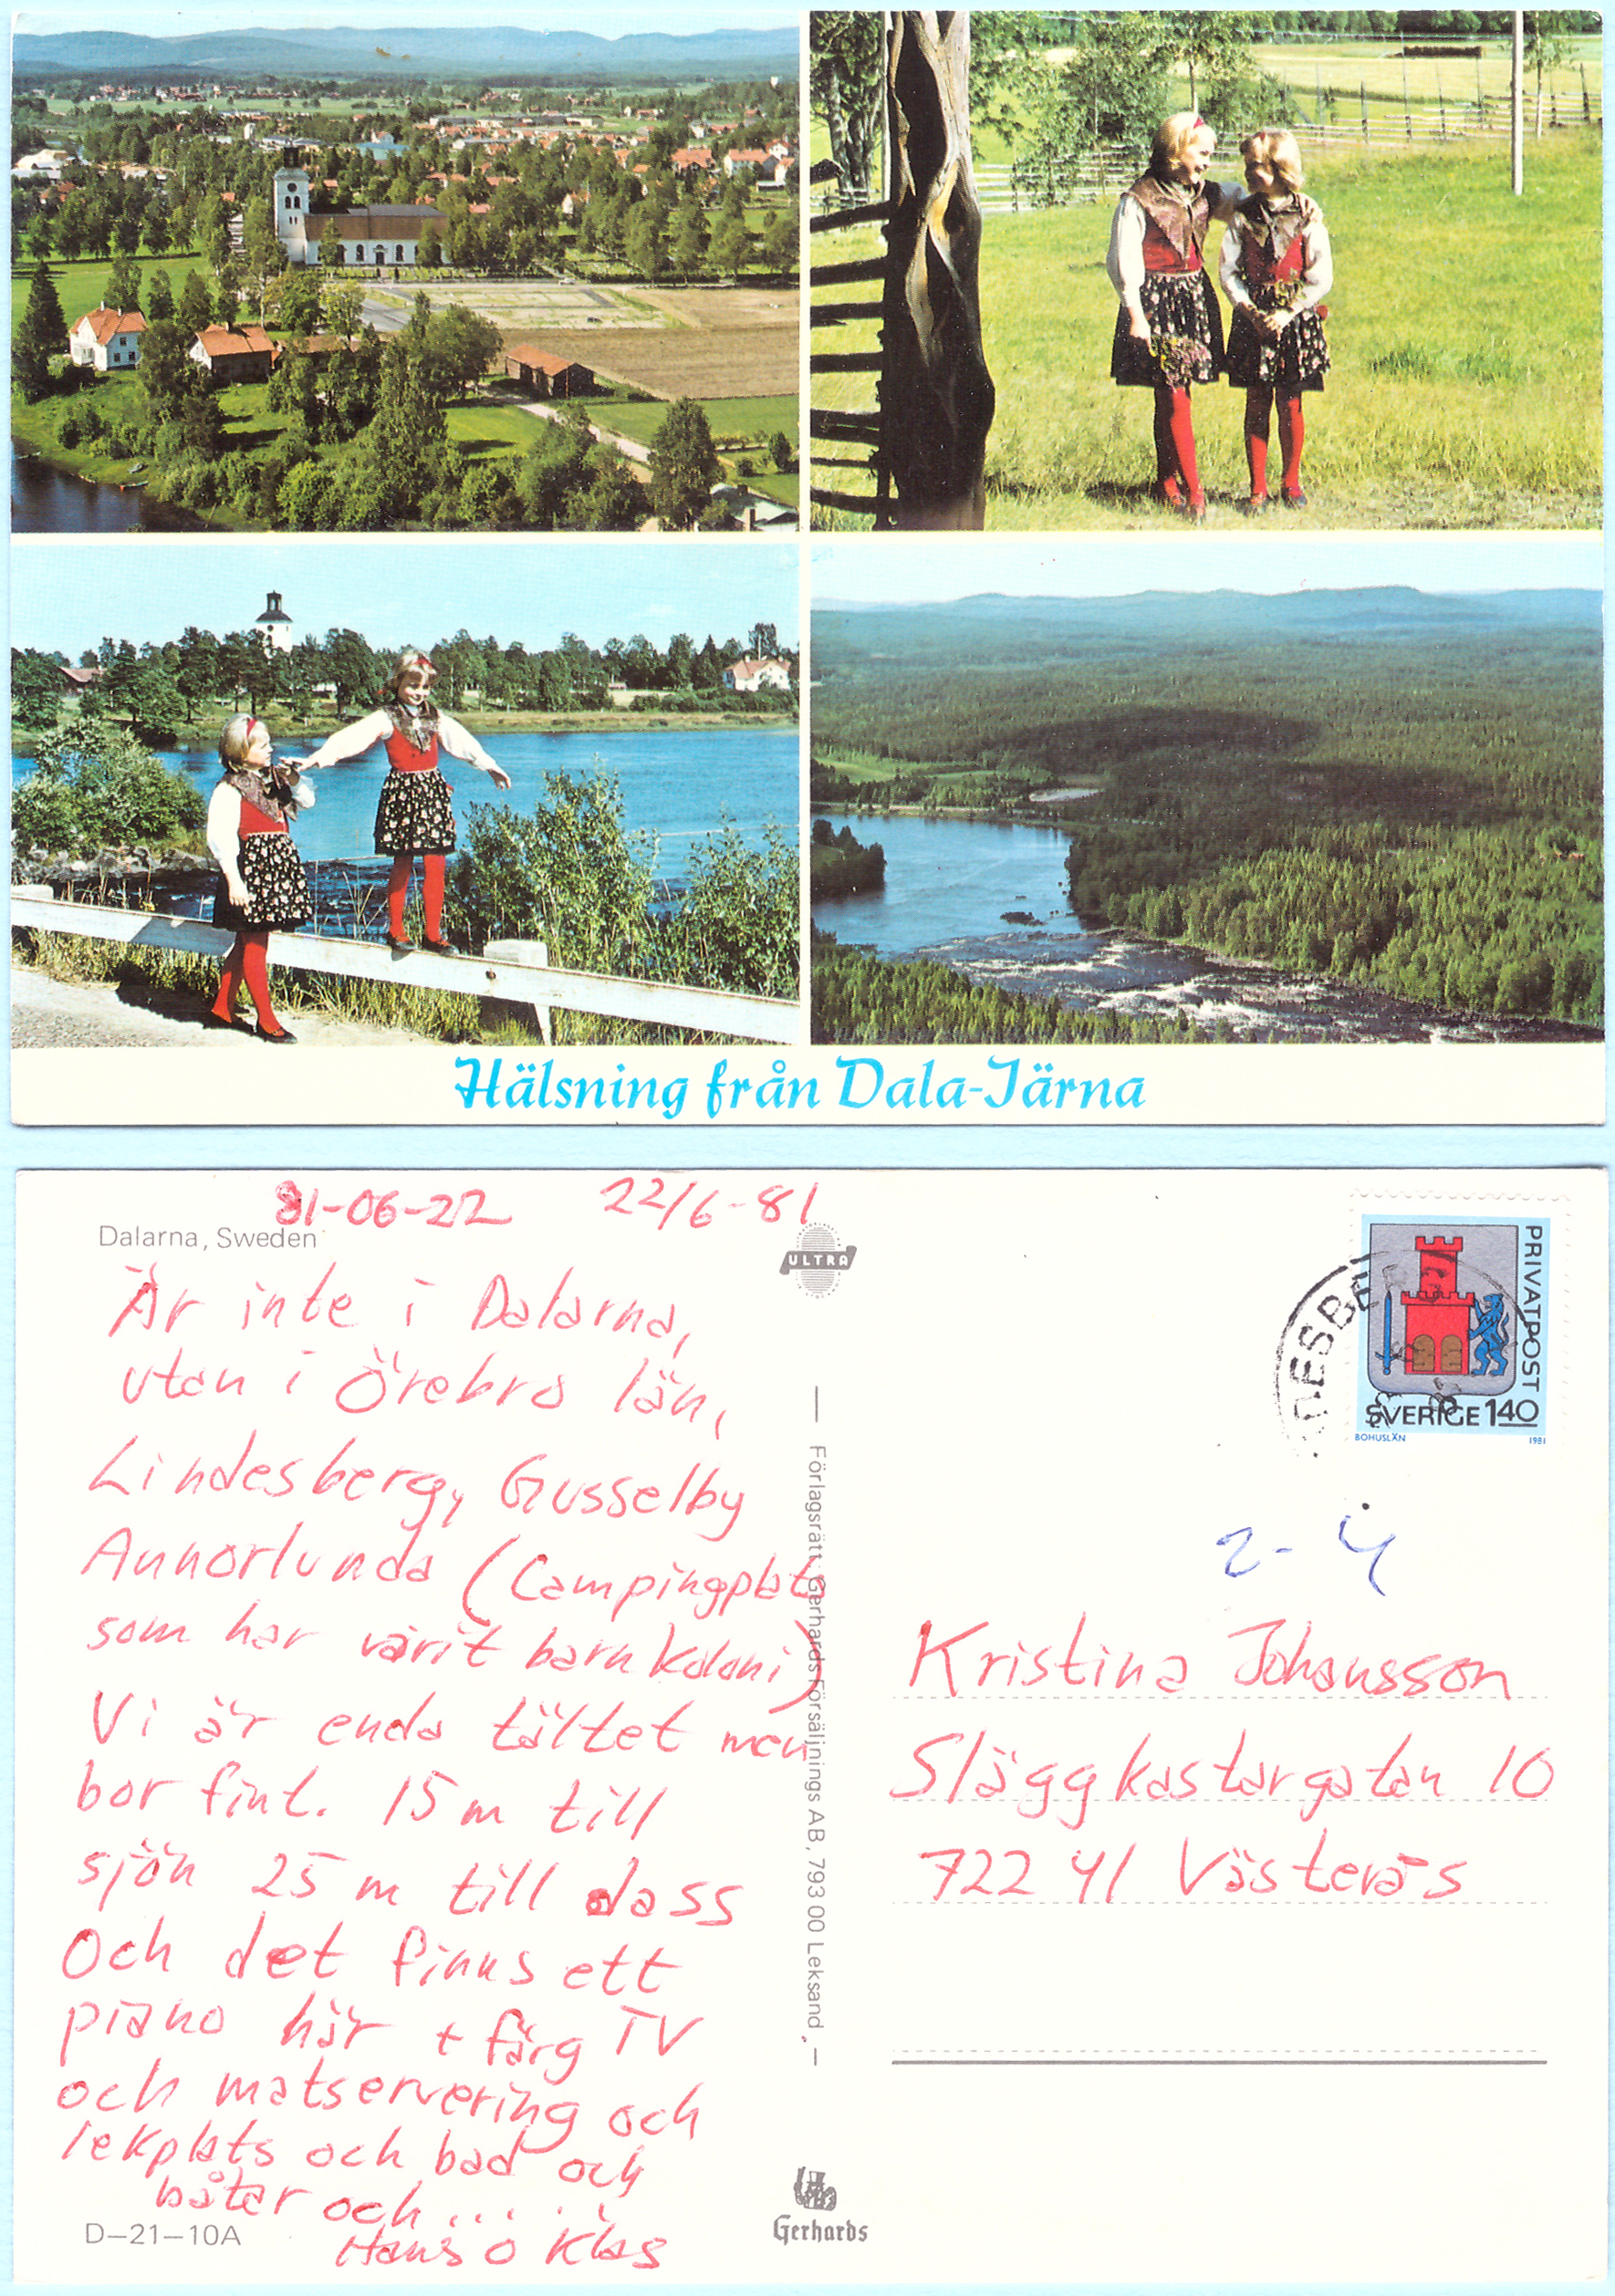 Hälsning från Dala-Järna
81-06-22 22/6-81
Dalarna, Sweden
Är inte i Dalarna,
utan i Örebro län,
Lindesberg, Gusselby
Annorlunda (Campingplats
som har varit barnkoloni)
Vi är enda tältet men
bor fint. 15 m till
sjön 25 m till dass
Och det finns ett
piano här + färg TV
och matservering och
lekplats och bad och
båtar och .....
Hans o Klas
D-21-10A
ULTRA
— Förlagsrätt: Gerhards Försäljnings AB, 793 00 Leksand. —
Gerhards
PRIVATPOST
SVERIGE 140
BOHUSLÄN 1981
Kristina Johansson
Släggkastargatan 10
722 41 Västerås